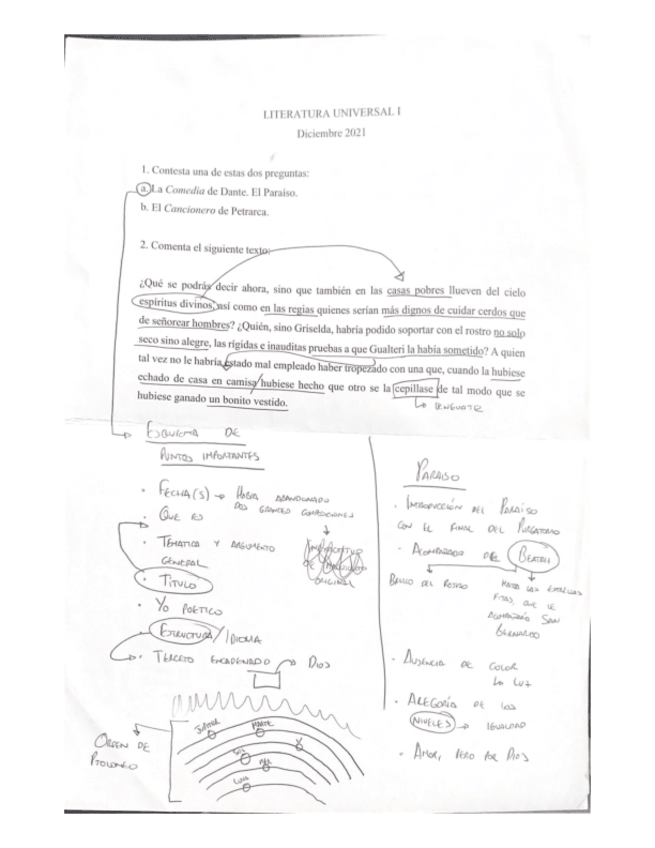 LITERATURA UNIVERSAL I
Diciembre 2021
1. Contesta una de estas dos preguntas:
a. La Comedia de Dante. El Paraíso.
b. El Cancionero de Petrarca.
2. Comenta el siguiente texto:
¿Qué se podrás decir ahora, sino que también en las casas pobres llueven del cielo
espíritus divinos, así como en las regias quienes serían más dignos de cuidar cerdos que
de señorear hombres? ¿Quién, sino Griselda, habría podido soportar con el rostro no solo
seco sino alegre, las rígidas e inauditas pruebas a que Gualteri la había sometido? A quien
tal vez no le habría estado mal empleado haber tropezado con una que, cuando la hubiese
echado de casa en camisa hubiese hecho que otro se la cepillase de tal modo que se
hubiese ganado un bonito vestido.
LENGUAJE
ESQUEMA DE
PUNTOS IMPORTANTES
· FECHA(S) → HABÍA ABANDONADO
DOS GRANDES COMPOSICIONES
· QUE ES
· TEMÁTICA Y ARGUMENTO
GENERAL
ORIGINAL
· TÍTULO
· YO POÉTICO
· ESTRUCTURA / IDIOMA
· TERCETO ENCADENADO
DIOS
JÚPITER
MARTE
SOL
LUNA
ORDEN DE
PTOLOMEO
PARAISO
· INTRODUCCIÓN DEL PARAÍSO
CON EL FINAL DEL PURGATORIO
· ACOMPAÑADO DEL BEATRIZ
BRILLO DEL ROSTRO
HASTA LAS ESTRELLAS
FIJAS, QUE LE
ACOMPAÑARÁ SAN
BERNARDO
· AUSENCIA DE COLOR
LA LUZ
· ALEGORÍA DE LOS
NIVELES → IGUALDAD
· AMOR, PERO POR DIOS